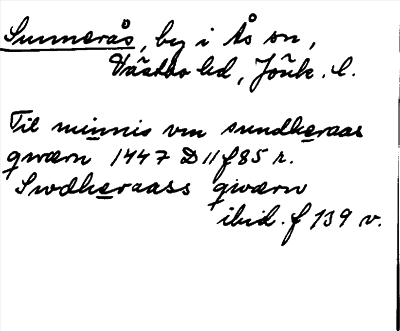 Sunnerås, by i Ås sn,
Västbo hd, Jönk. l.
Til minnis um sundheraas
qwærn 1447 D 11 f 85 r.
Swdheraass qwærn
ibid. f 139 v.